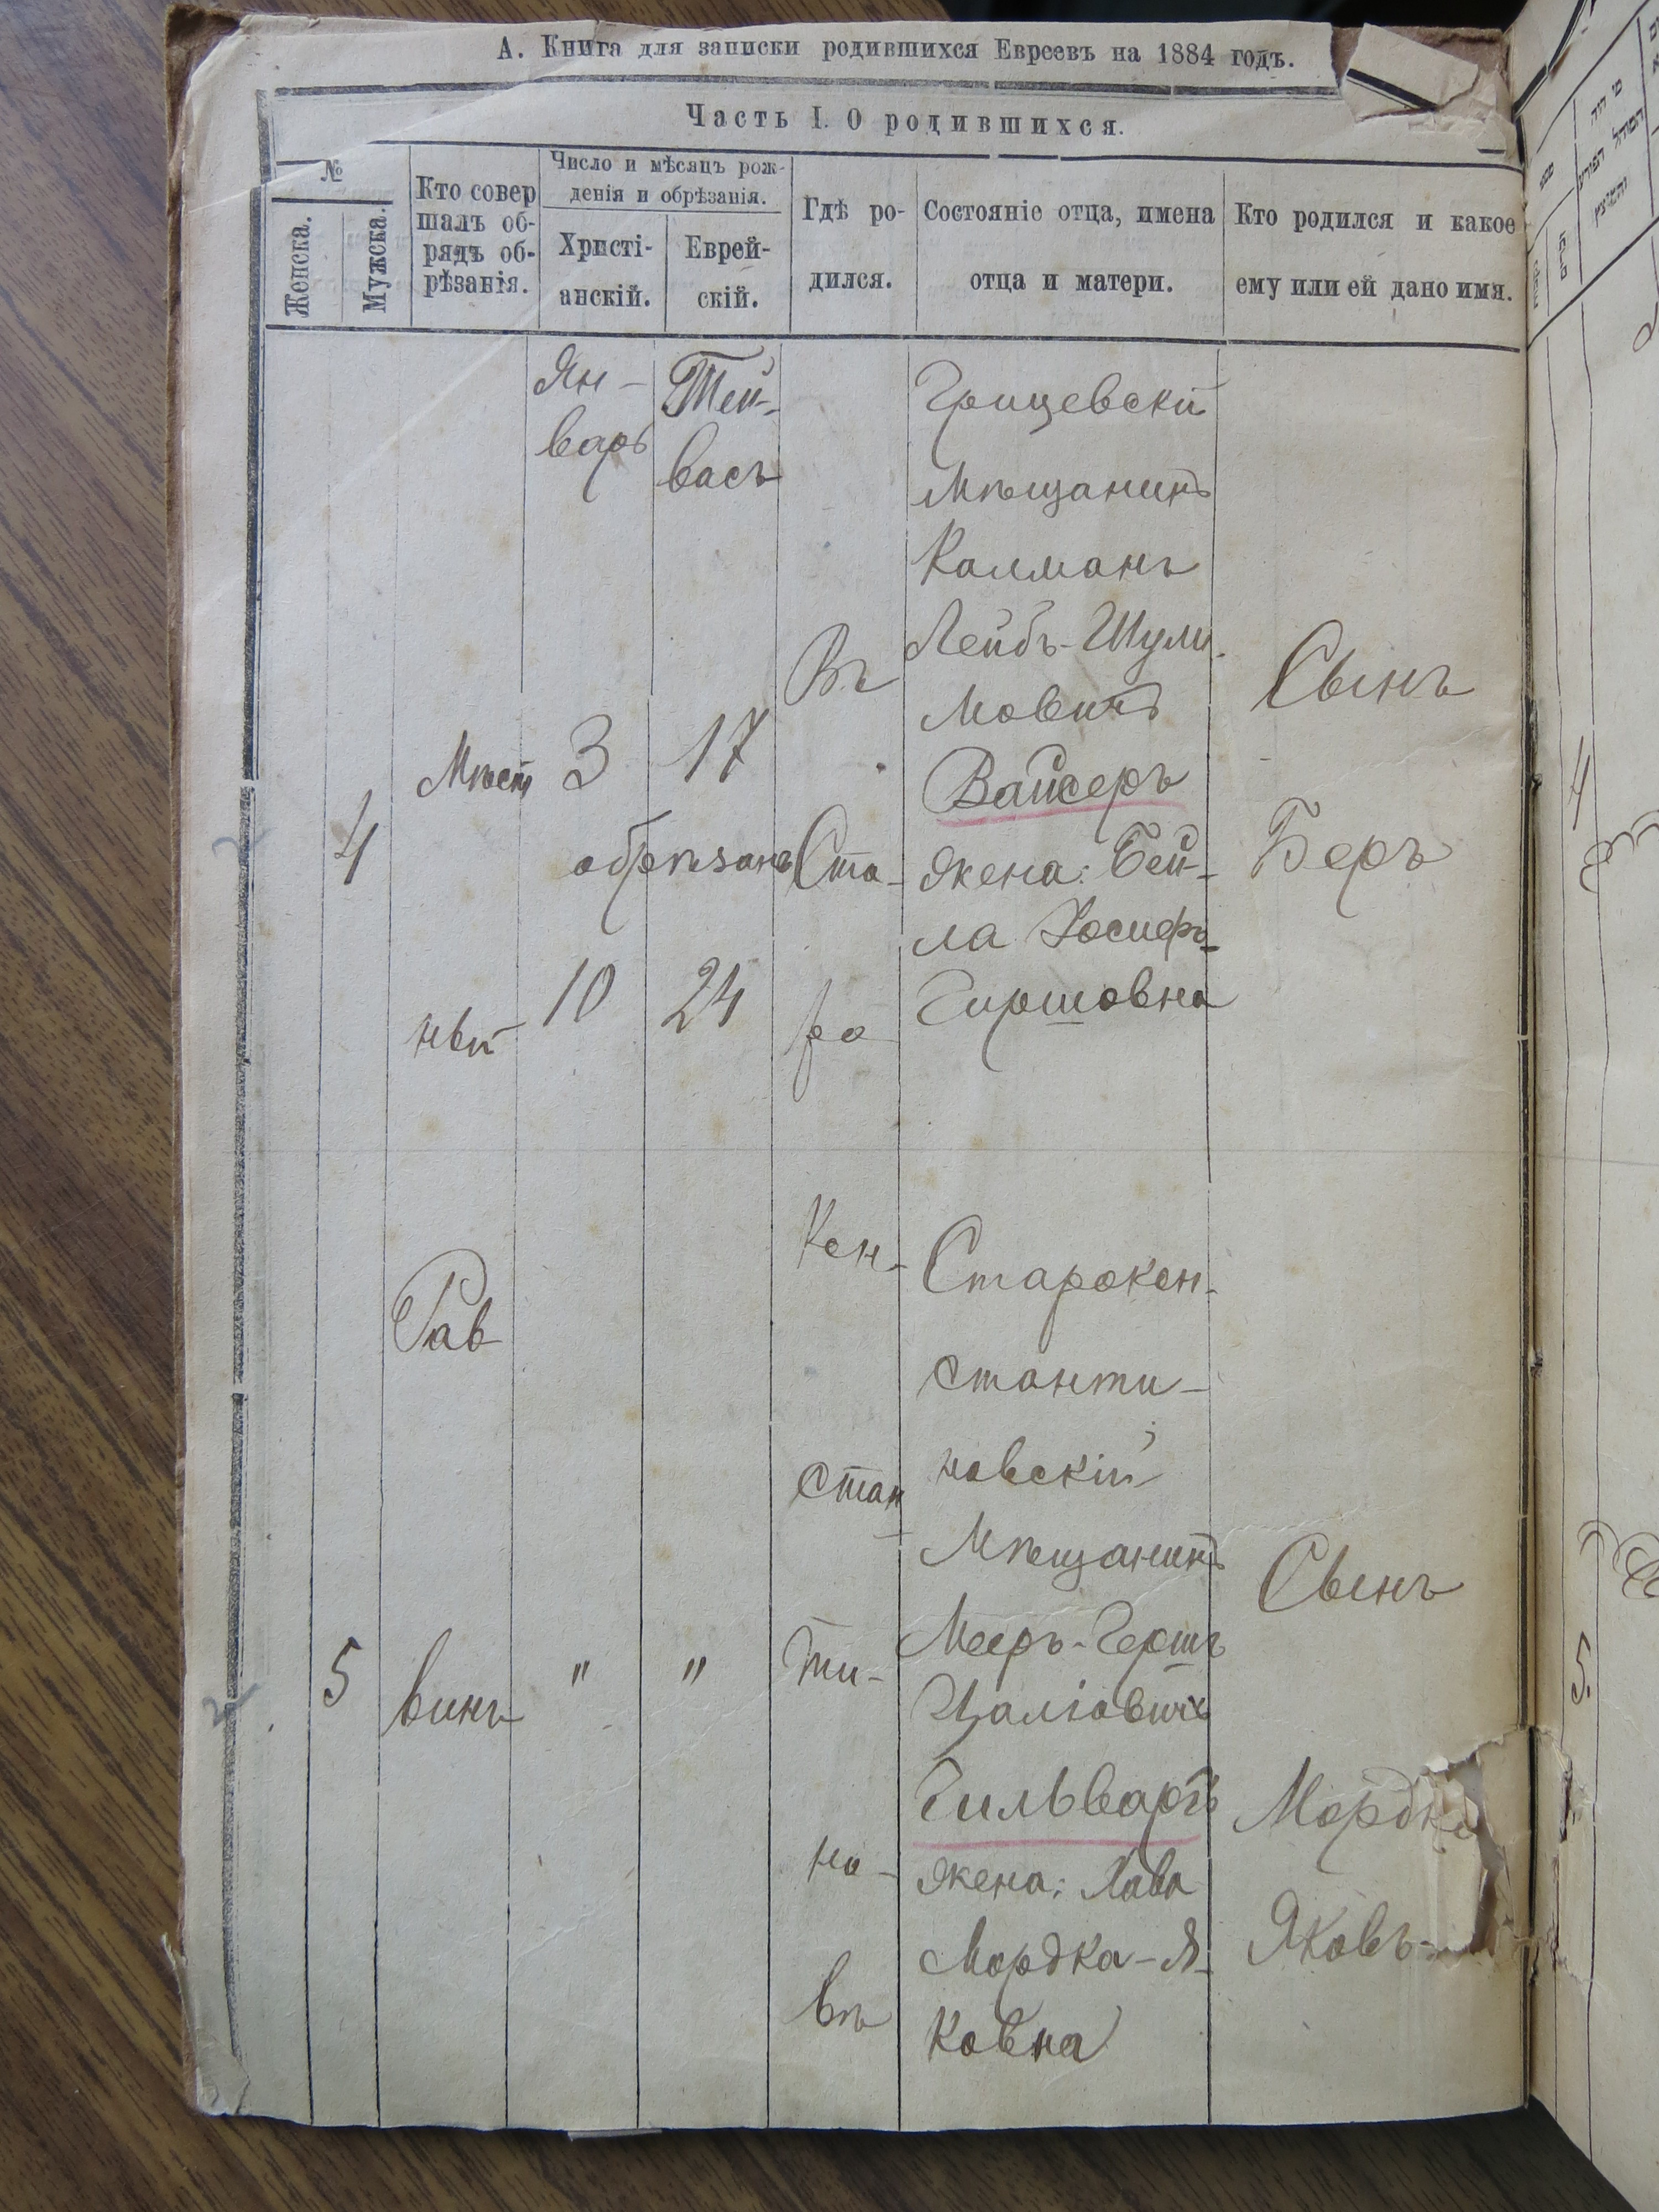 А. Книга для записки родившихся Евреевъ на 1884 годъ.
Часть I. О родившихся.
№
Женска.
Мужска.
Кто совер
шалъ об-
рядъ об-
рѣзанія.
Число и мѣсяцъ рож-
денія и обрѣзанія.
Христі-
анскій.
Еврей-
скій.
Гдѣ ро-
дился.
Состояніе отца, имена
отца и матери.
Кто родился и какое
ему или ей дано имя.
4
Мѣст
ный
Ян-
варь
3
обрѣзанъ
10
Тей-
васъ
17
24
Въ
Ста-
ро
Грицевскій
Мѣщанинъ
Калманъ
Лейбъ-Шули-
мовичъ
Вайсеръ
жена: Бей-
ла Іосифъ-
Гиршовна
Сынъ
Беръ
5
Рав
винъ
"
"
Кон-
стан-
ти-
но-
вѣ
Старокон-
станти-
новскій
Мѣщанинъ
Мееръ-Гершъ
Цаліовичъ
Гильваргъ
жена:
Мордка-Я-
ковна
Сынъ
Яковъ-
4
5.